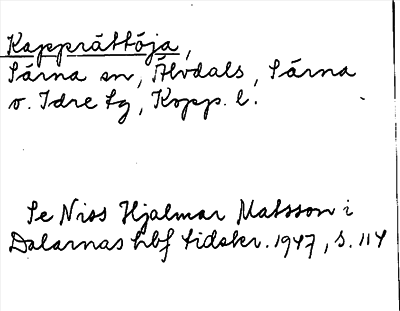 Kappråttöja,
Särna sn, Älvdals, Särna
o. Idre tg, Kopp. l.
Se Niss Hjalmar Matsson i
Dalarnas hbf tidskr. 1947, s. 114